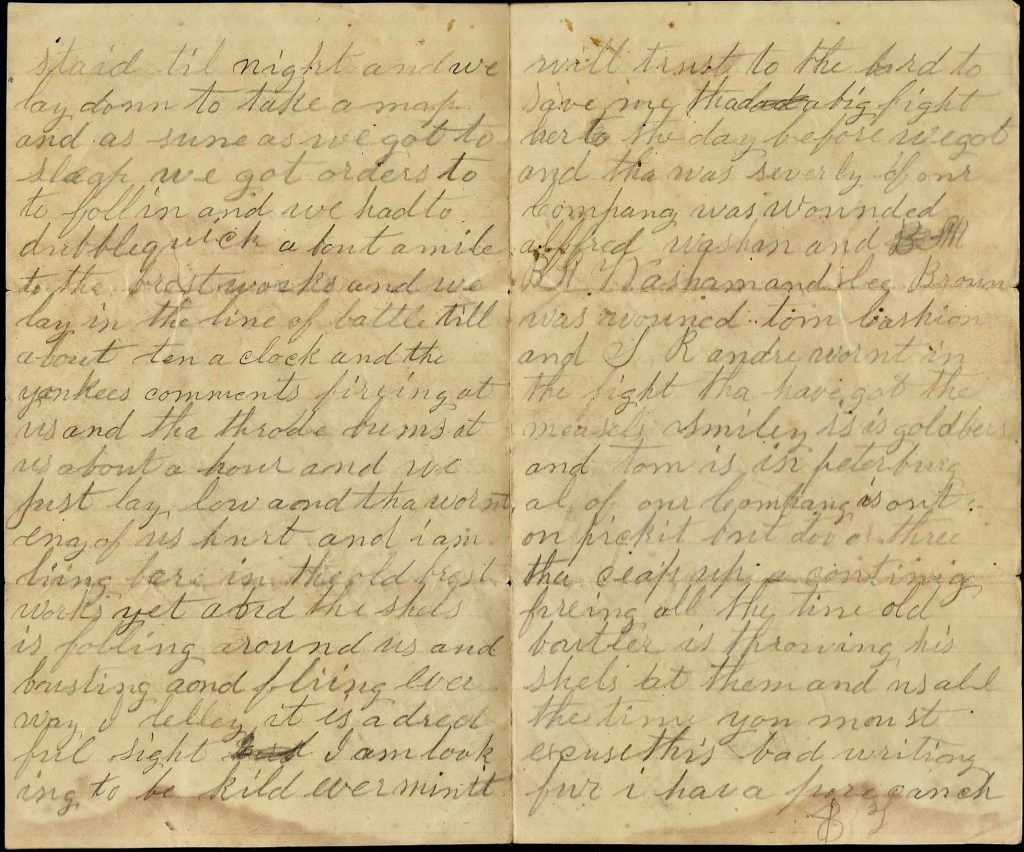 staid til night and we
lay donn to take a nap
and as sune as we got to
sleap we got orders to
to foll in and we had to
dubblequick about a mile
to the brest works and we
lay in the line of battle till
about ten a clock and the
yankees comments firging at
us and tha throde bums at
us about a hour and we
just lay low aond tha wornt
eny of us hurt and i am
liing here in the old brest
works yet abnd the shels
is folling around us and
bousting aond fliing ever
way I telley it is a dred
ful sight I am look
ing to be kild ever minit
will trust to the lord to
save me tha had a big fight
her to the day before we got
and tha was severly of our
Compang was wounded
allfred washan and
B R Washam and leg Broun
was wouned tom Cashion
and J R andre wornt in
the fight tha have got the
measels smiley is is goldbers
and tom is in peterburg
al of our Compang is out
on pickit but dow or three
tha ceap up a continig
freing all the time old
boutler is throwing his
shels at them and us all
the time you moust
excuse this bad writing
fur i hav a pore canch